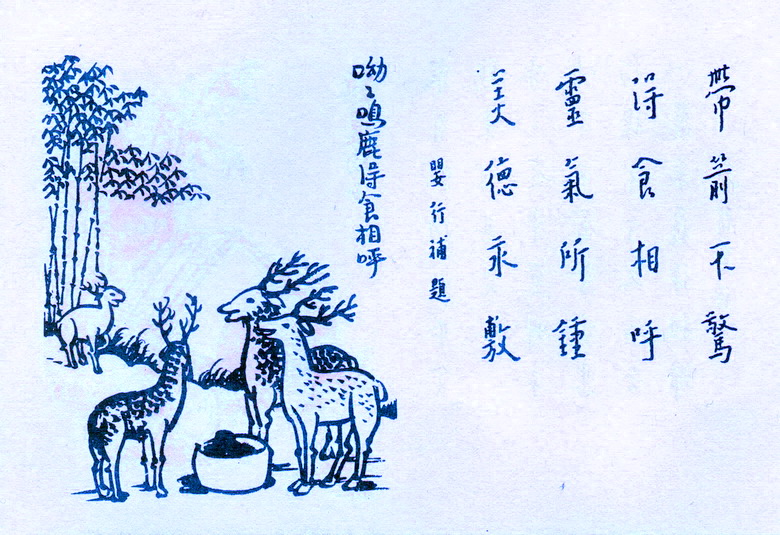 帶箭不驚
得食相呼
靈氣所鍾
美德永敷
嬰行補題
呦々鳴鹿得食相呼